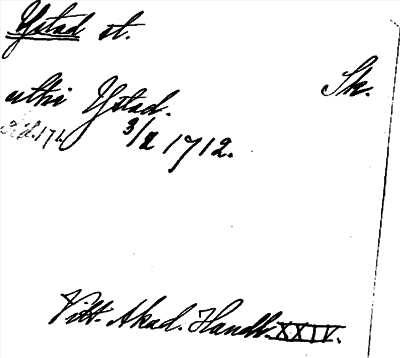 Ystad st.
Sk.
uthi Ystad.
3/2 1712.
Vitt. Akad. Handl. XXIV.